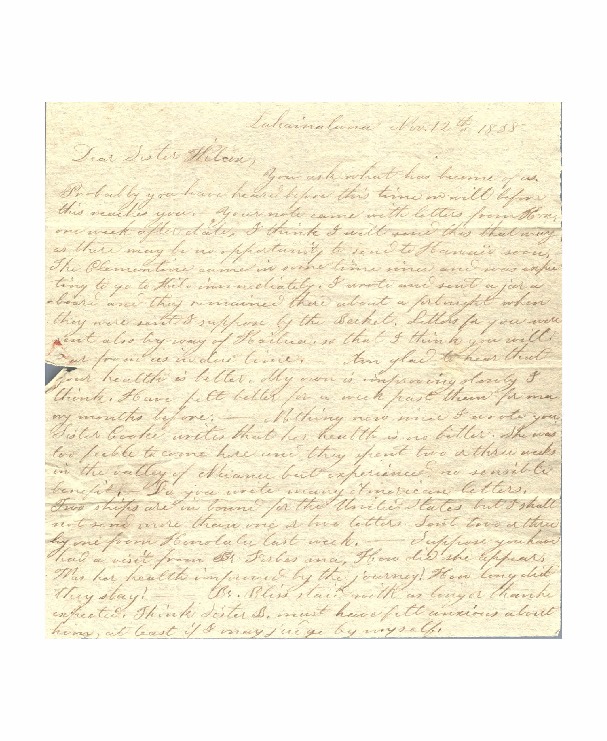 Lahainaluna Nov. 12th, 1838
Dear Sister Wilcox,
You ask what has become of us.
Probably you have heard before this time or will before
this reaches you. Your note came with letters from Hilo,
one week after date. I think I will send this that way
as there may be no opportunity to send to Hawaii soon.
The Clementine came in some time since and was expec
ting to go to Hilo immediately. I wrote and sent a jar a
board and they remained there about a fortnight when
they were sent I suppose by the Becket. Letters for you were
sent also by way of Kailua, so that I think you will
hear from us in due time. Am glad to hear that
your health is better. My own is improving slowly I
think. Have felt better for a week past than for ma
ny months before. — Nothing new since I wrote you
Sister Cooke writes that her health is no better. She was
too feeble to come here and they spent two or three weeks
in the valley of Nuanu but experienced no sensible
benefit. Do you write many American letters.
Two ships are in bound for the United States but I shall
not send more than one or two letters. Sent two or three
by one from Honolulu last week. — Suppose you have
had a visit from Br Forbes and, How did she appear.
Was her health improved by the journey? How long did
they stay? — Br. Bliss staid with us longer than he
expected. Think Sister B. must have felt anxious about
home, at least if I may judge by myself.